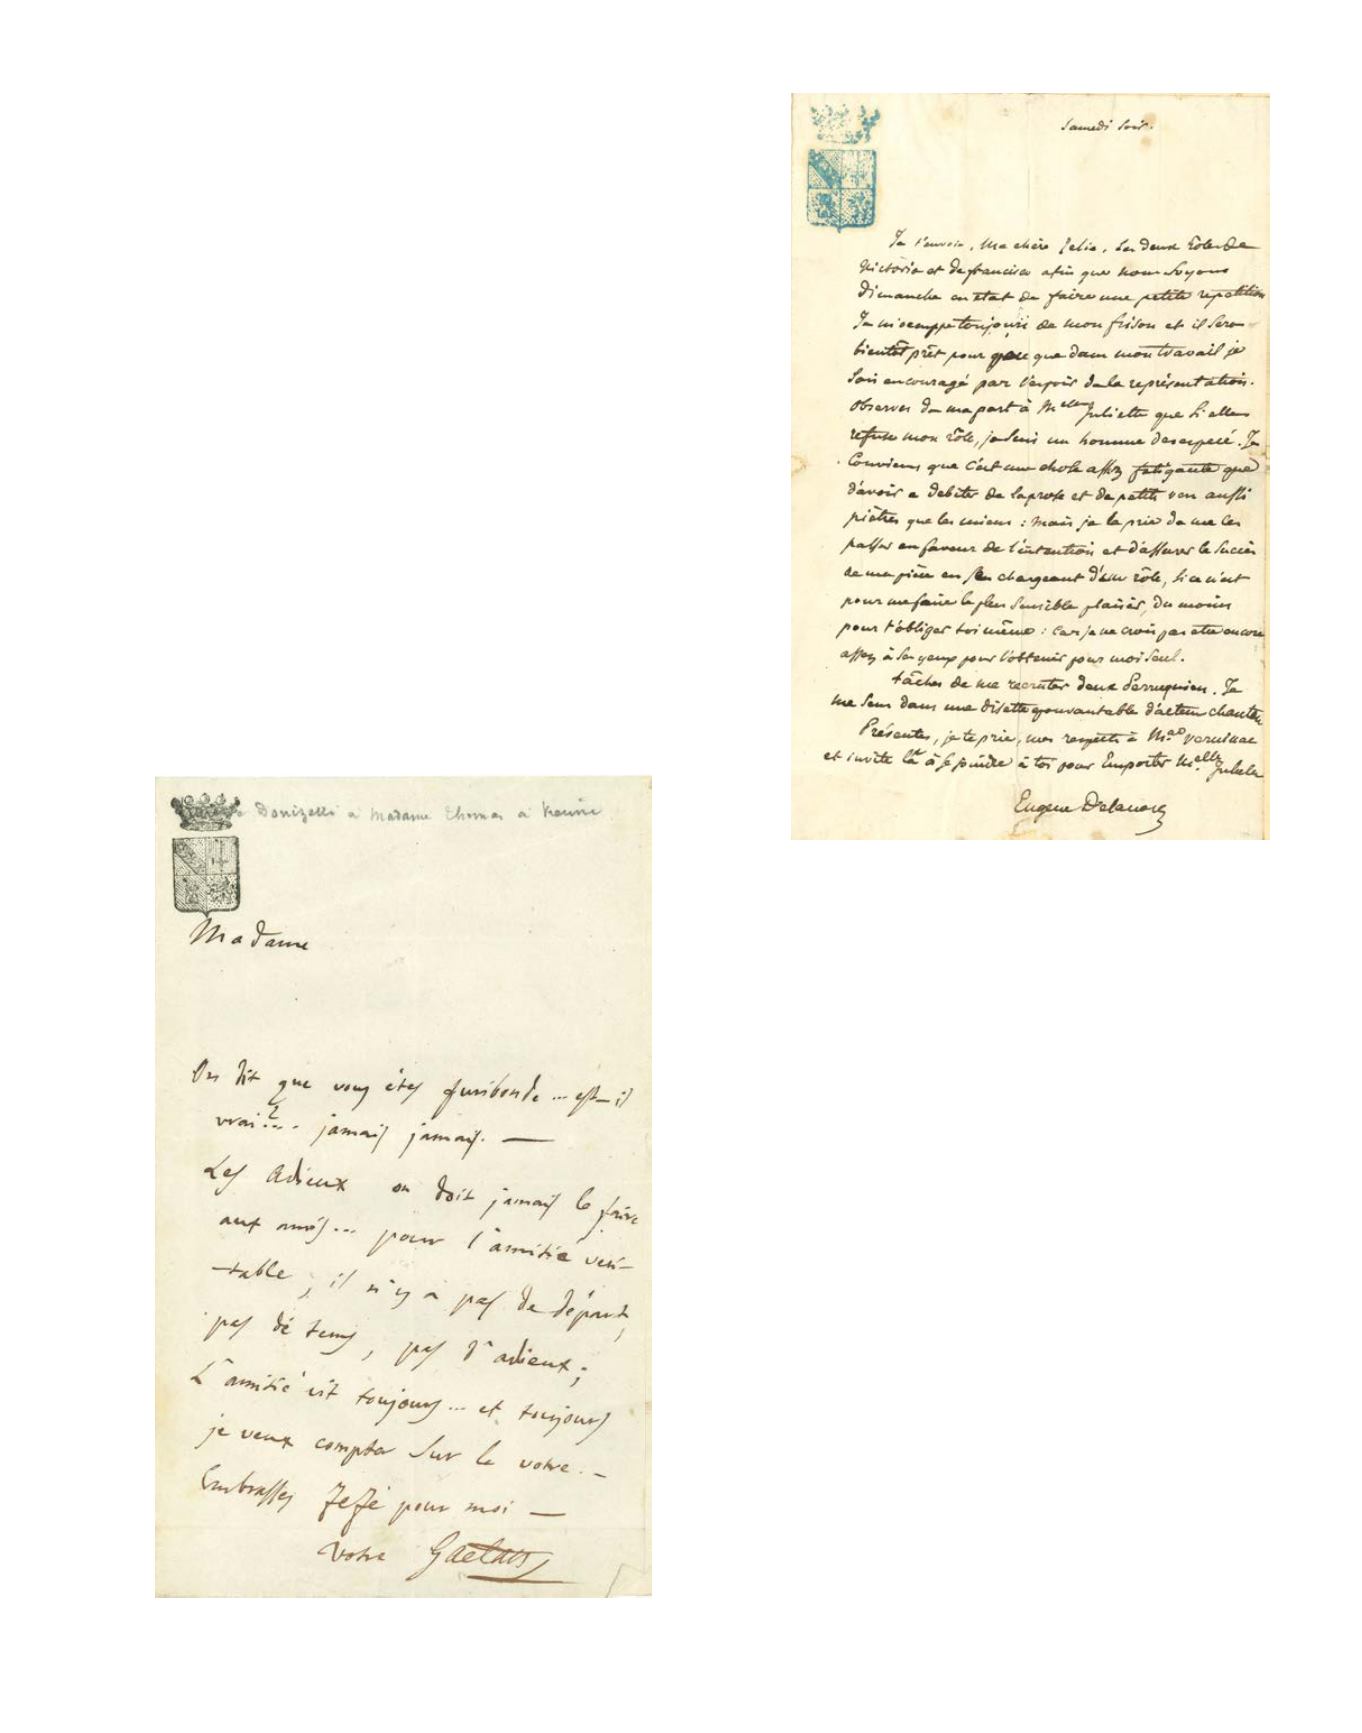 Samedi soir.
Je t'envoie, ma chère Félix, les deux rôles de
Victoria et de francisco afin que nous soyons
Dimanche en état de faire une petite repetition
Je m'occuppe toujours de mon frison et il sera
bientôt prêt pour que dans mon travail je
sois encouragé par l'espoir de la représentation.
Observes de ma part à Melle Juliette que si elle
refuse mon rôle, je suis un homme desesperé. Je
Conviens que c'est une chose assez fatigante que
d'avoir a debiter de la prose et de petits vers aussi
piètres que les miens : mais je la prie de me les
passer en faveur de l'intention et d'assurer le succès
de ma pièce en se chargeant d'un rôle, si ce n'est
pour me faire le plus sensible plaisir, du moins
pour t'obliger toi même : car je ne crois pas etre encore
assez à ses yeux pour l'obtenir pour moi seul.
tâches de me recruter deux Perruquiers. Je
me sens dans une disette epouvantable d'acteurs chantan
Présentes, je te prie, mes respects à Mad Verninac
et invite la à se joindre à toi pour Emporter Melle
Eugène Delacroix
Donizetti a Madame Thomas a
Madame
On dit que vous êtes furibonde ... est-il
vrai?.. jamais jamais. —
Les Adieux on doit jamais le faire
aux amis... pour l'amitié veri-
-table, il n'y a pas de départ,
pas dé tems, pas d'adieux;
L'amitié vit toujours ... et toujours
je veux compter sur la votre. —
Embrassez Zezé pour moi —
Votre Gaetano